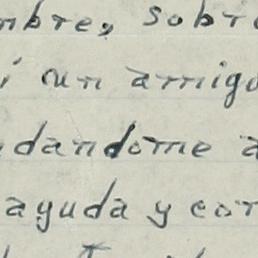 mbre, sobr
i un amigo
dandome a
ayuda y cor